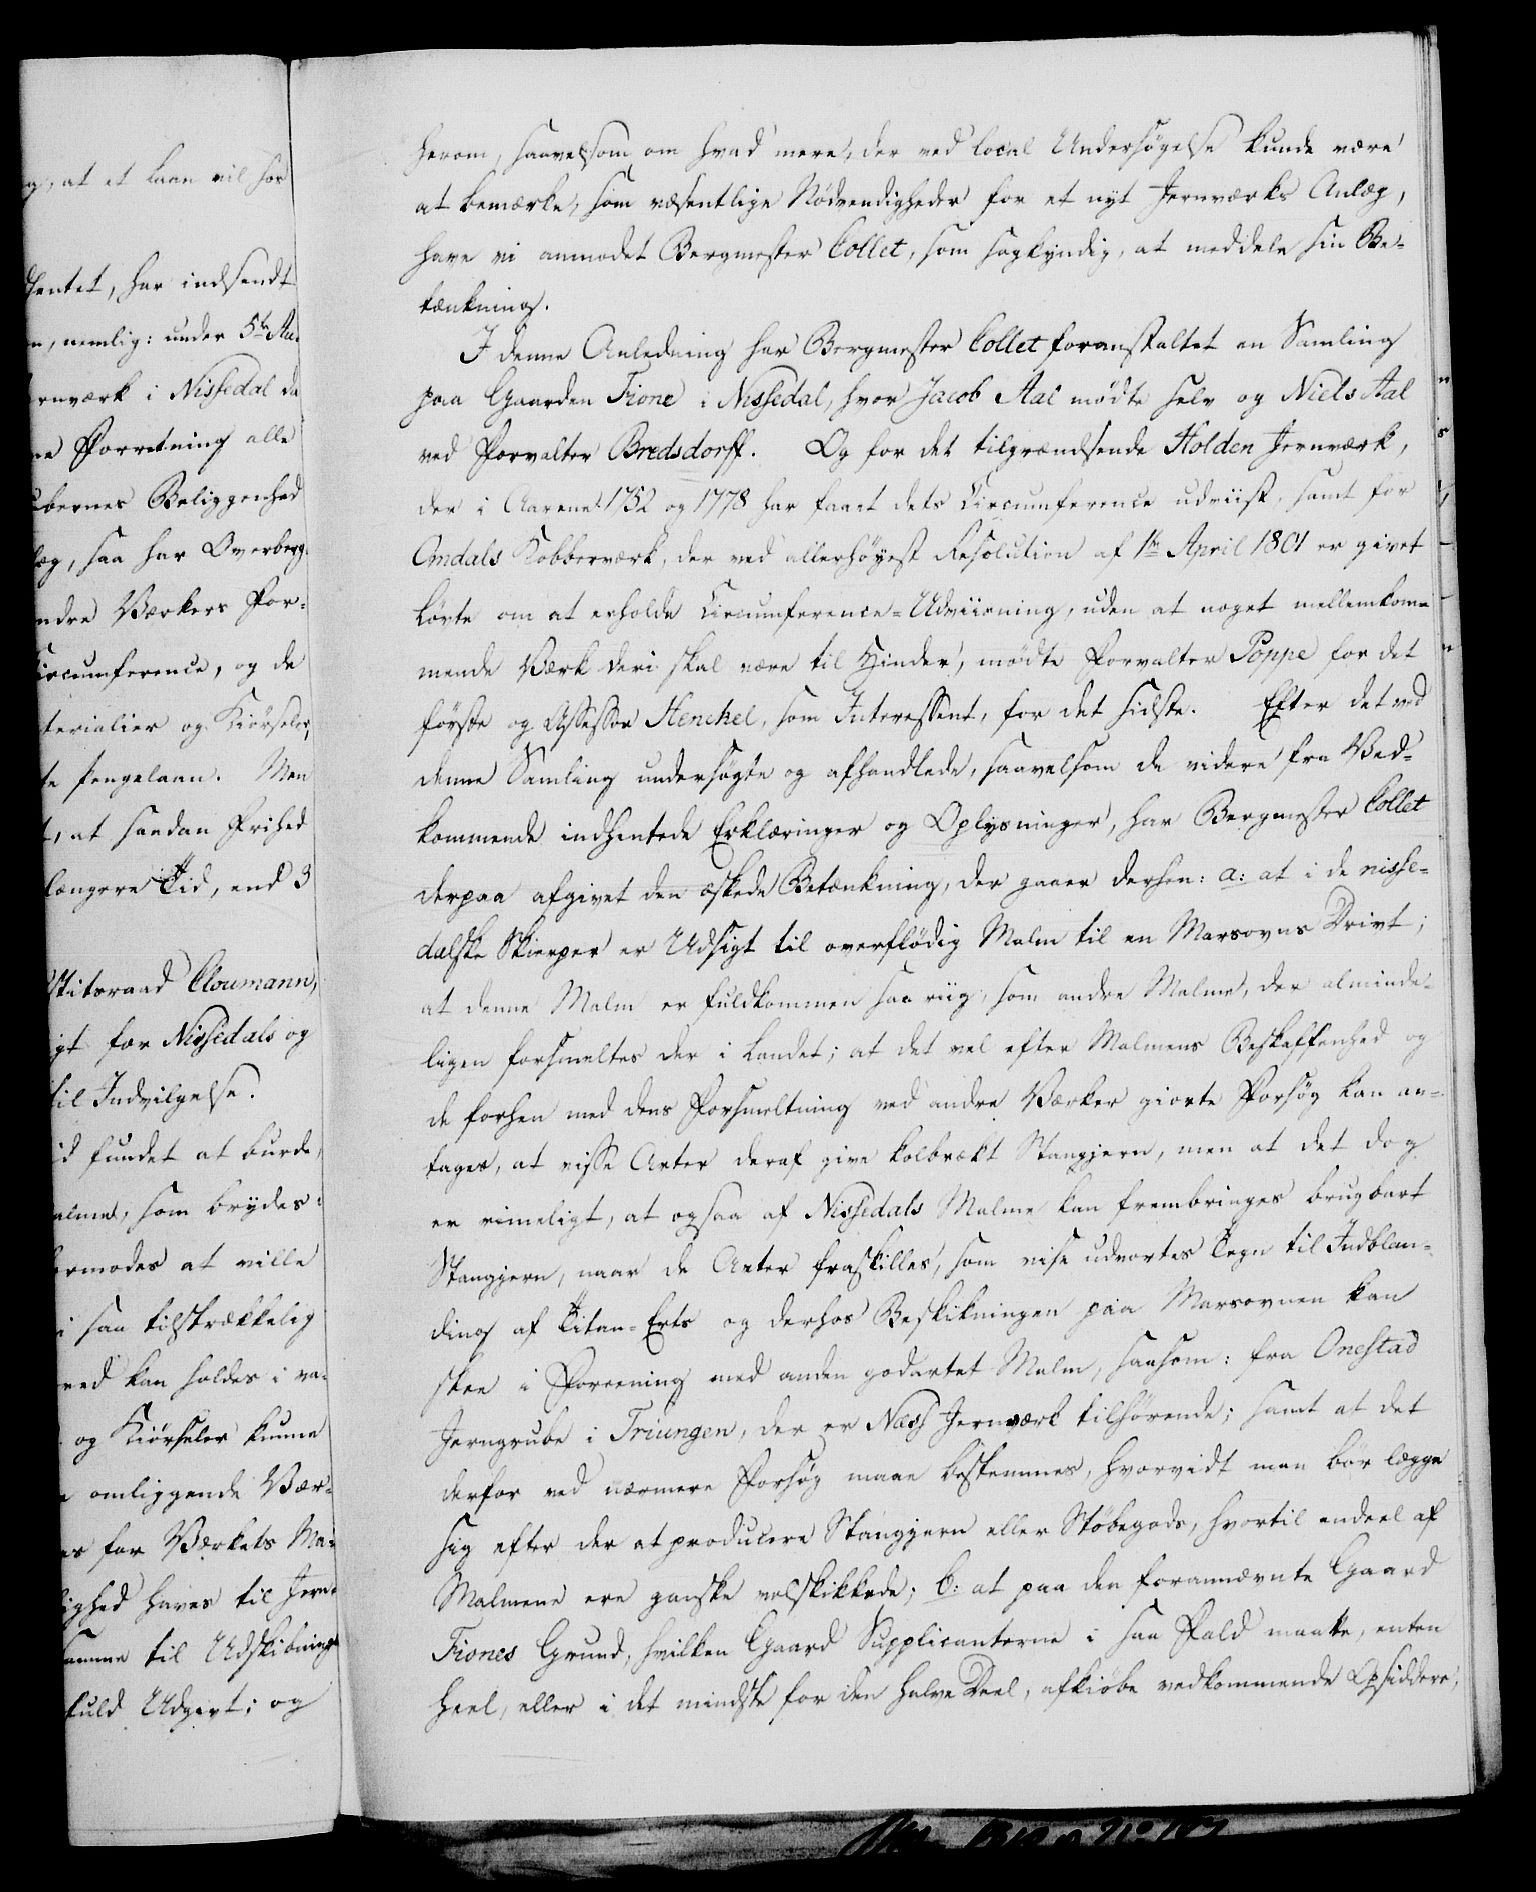 g, at et Laan vil hos
hentet, har indsendt
n, nemlig: under 5te Au-
ernværk i Nissedal da
ne Forretning alle
ubernes Beliggenhed
læg, saa har Overberg-
ndre Værkers For-
Circumference, og de
terialier og Kiörseler,
te Pengelaan. Men
t, at saadan Frihed
længere Tid, end 3
Etitsraad Cloumann,
igt for Nissedals og
til Indvilgelse.
id fundet at burde,
alme, som brydes:
ermodes at ville
i saa tilstrækkelig
ved kan holdes i va-
og Kiörseler kunne
e omliggende Vær-
es for Værkets Ma-
ighed haves til Jern-
samme til Udskibnings
fuld Udgivt; og
herom, saavelsom om hvad mere, der ved local Undersögelse kunde være
at bemærke, som væsentlige Nödvendigheder for et nyt Jernværks Anlæg,
have vi anmodet Bergmester Collet, som sagkyndig, at meddele sin Be-
tænkning.
I denne Anledning har Bergmester Collet foranstaltet en Samling
paa Gaarden Tione i Nissedal, hvor Jacob Aal mødte selv og Niels Aal
ved Forvalter Bredsdorff. Og for det tilgrændsende Holden Jernværk,
der i Aarene 1752 og 1778 har faaet dets Circumference udviist, samt for
Omdals Kobberværk, der ved allerhöyest Resolution af 1te April 1801 er givet
Lövte om at erholde Circumference-Udviisning, uden at noget mellemkom-
mende Værk deri skal være til Hinder, mödte Forvalter Poppe for det
förste og Assessor Henckel, som Interessent, for det sidste. Efter det ved
denne Samling undersögte og afhandlede, saavelsom de videre fra Ved-
kommende indhentede Erklæringer og Oplysninger, har Bergmester Collet
derpaa afgivet den æskede Betænkning, der gaaer derhen: a: at i de nisse-
dalske Skierper er Udsigt til overflödig Malm til en Marsovns Drivt;
at denne Malm er fuldkommen saa riig, som andre Malme, der alminde-
ligen forsmeltes der i Landet; at det vel efter Malmens Beskaffenhed og
de forhen med dens Forsmeltning ved andre Værker giorte Forsög kan an-
tages, at visse Arter deraf give koldbrækt Stangjern, men at det dog
er rimeligt, at ogsaa af Nissedals Malme kan frembringes brugbart
Stangjern, naar de Arter fraskilles, som vise udvortes Tegn til Indblan-
ding af Titan-Erts og derhos Beskikningen paa Marsovnen kan
skee i Foreening med anden godartet Malm, saasom: fra Onestad
Jerngrube i Triungen, der er Næss Jernværk tilhörende; samt at det
derfor ved nærmere Forsög maae bestemmes, hvorvidt man bör lægge
sig efter der at producere Stangjern eller Stöbegods, hvortil endeel af
Malmene ere ganske velskikkede; b: at paa den forannævnte Gaard
Tiones Grund, hvilken Gaard Supplicanterne i saa Fald maatte, enten
heel, eller i det mindste for den halve Deel, afkiöbe vedkommende Opsiddere,